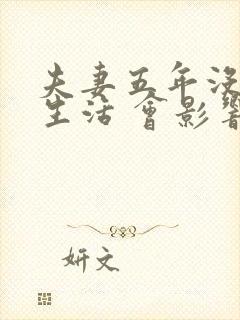 夫妻五年没
生活 會影響
妍文